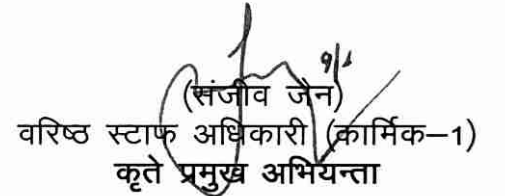 9/1
(संजीव जैन)
वरिष्ठ स्टाफ अधिकारी (कार्मिक–1)
कृते प्रमुख अभियन्ता